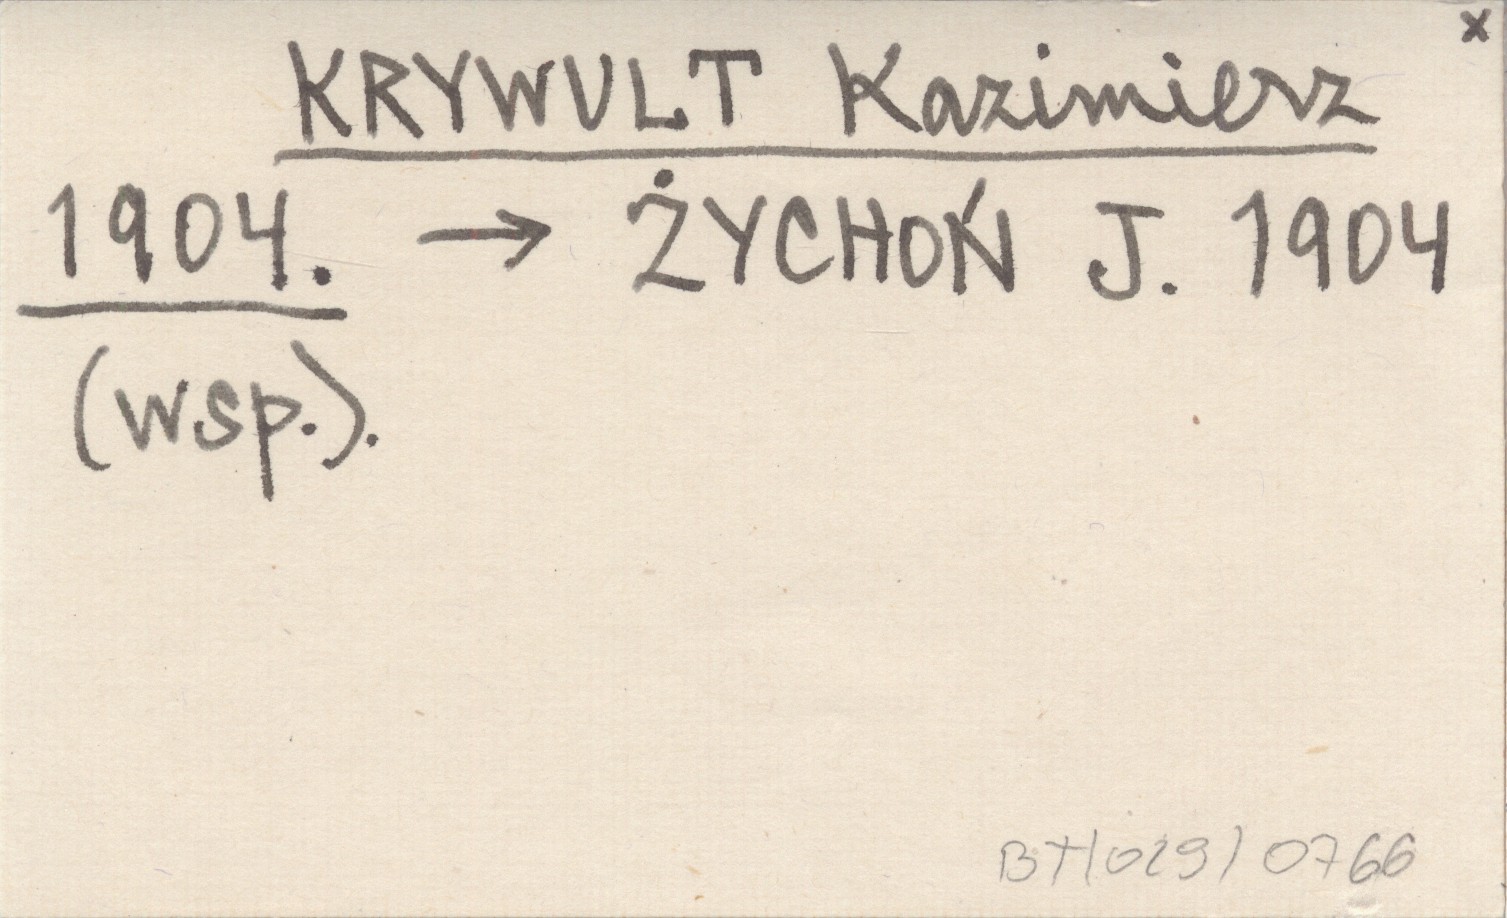 x
KRYWULT Kazimierz
1904. → ŻYCHOŃ J. 1904
(wsp.).
BT/029/0766